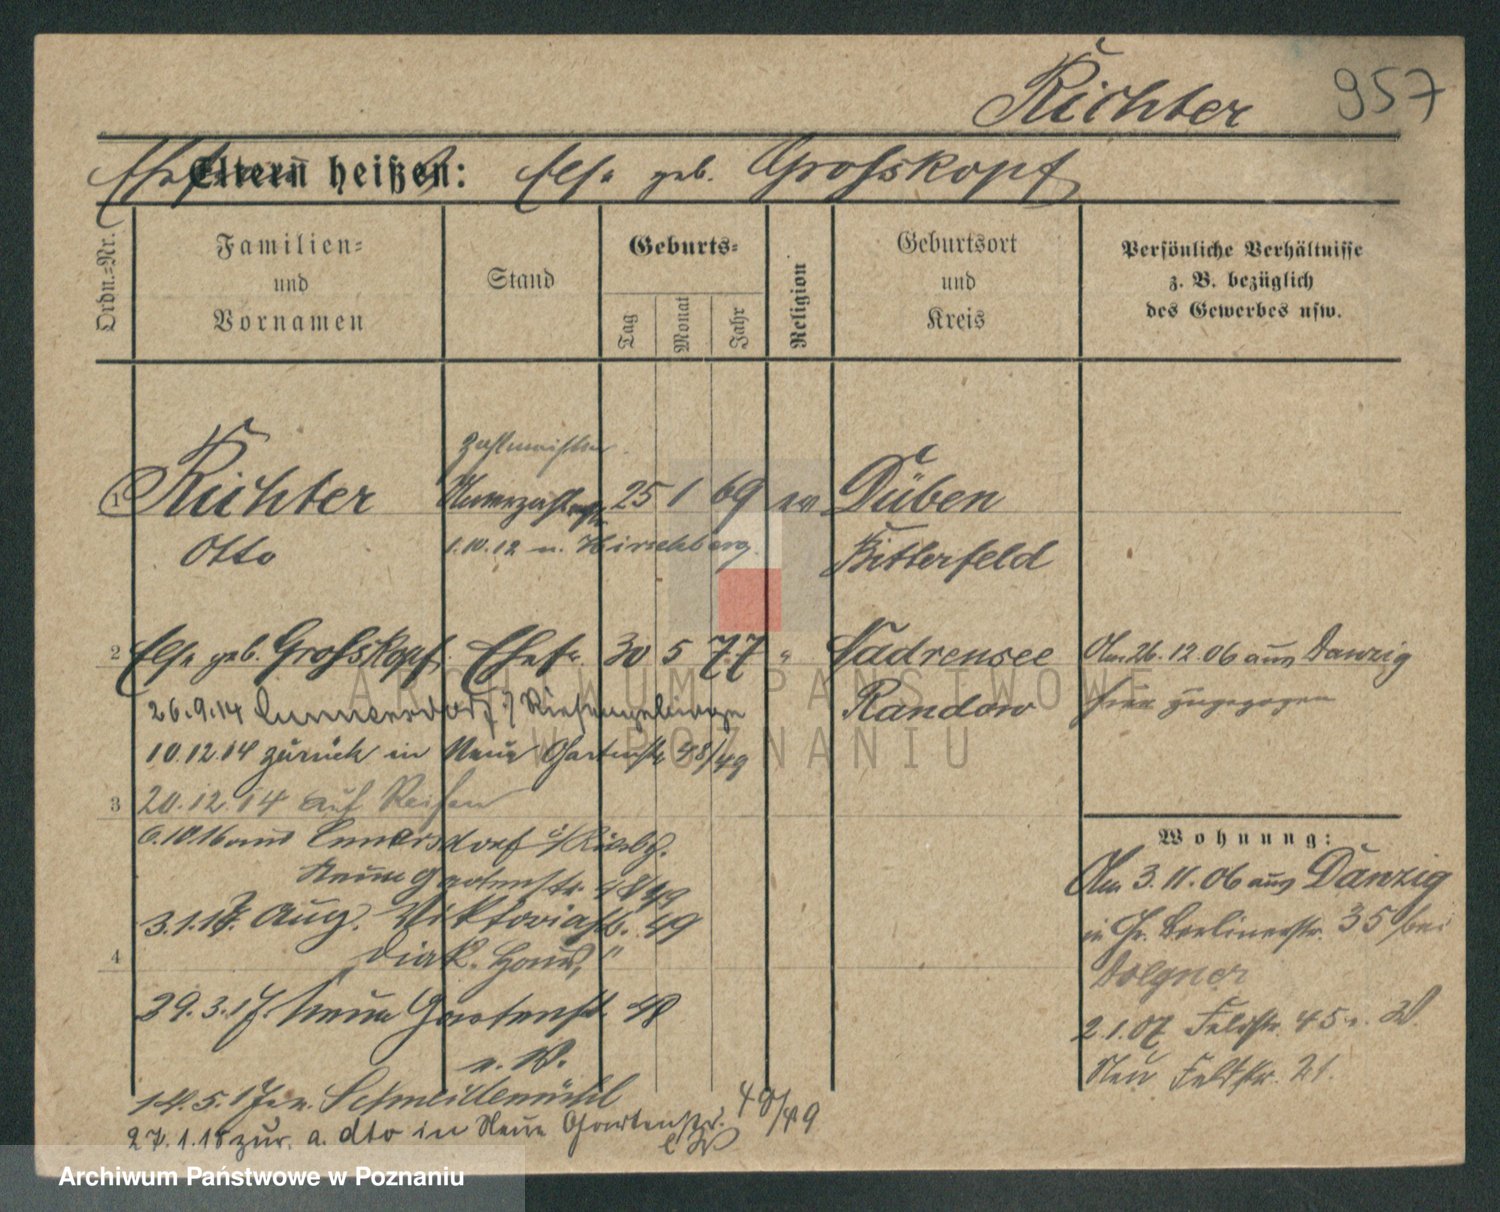 Richter 957
Eltern heißen: Else geb. Grosskopf
Ordn.-Nr.
Familien-
und
Vornamen
Stand
Geburts-
Tag
Monat
Jahr
Religion
Geburtsort
und
Kreis
Persönliche Verhältnisse
z. B. bezüglich
des Gewerbes usw.
Zahlmeister
1 Richter 25 1 69 ev Düben
Otto 1.10.12 n. Hirschberg. Bitterfeld
2 Else geb. Grosskopf. Ehefr. 30 5 77 " Nadrensee Am 26.12.06 aus Danzig
26.9.14 Riesengebirge Randow hier zugezogen
10.12.14 zurück in Neue Gartenstr 48/49
3 20.12.14 auf Reisen
6.10.16 aus
Neue Gartenstr. 48/49
3.1.17. Aug. Viktoriastr. 49
Diak. Haus,"
4
29.3.17 Neue Gartenstr. 48
v. W.
14.5.17 n. Schneidemühl
27.1.18 zur. a. dto in Neue Gartenstr. 48/49
Wohnung:
Am 3.11.06 aus Danzig
in Gr. Berlinerstr. 35 bei
Dolgner
2.1.07 Feldstr. 45 v. W.
Neu Feldstr. 21.
ARCHIWUM PAŃSTWOWE
W POZNANIU
Archiwum Państwowe w Poznaniu